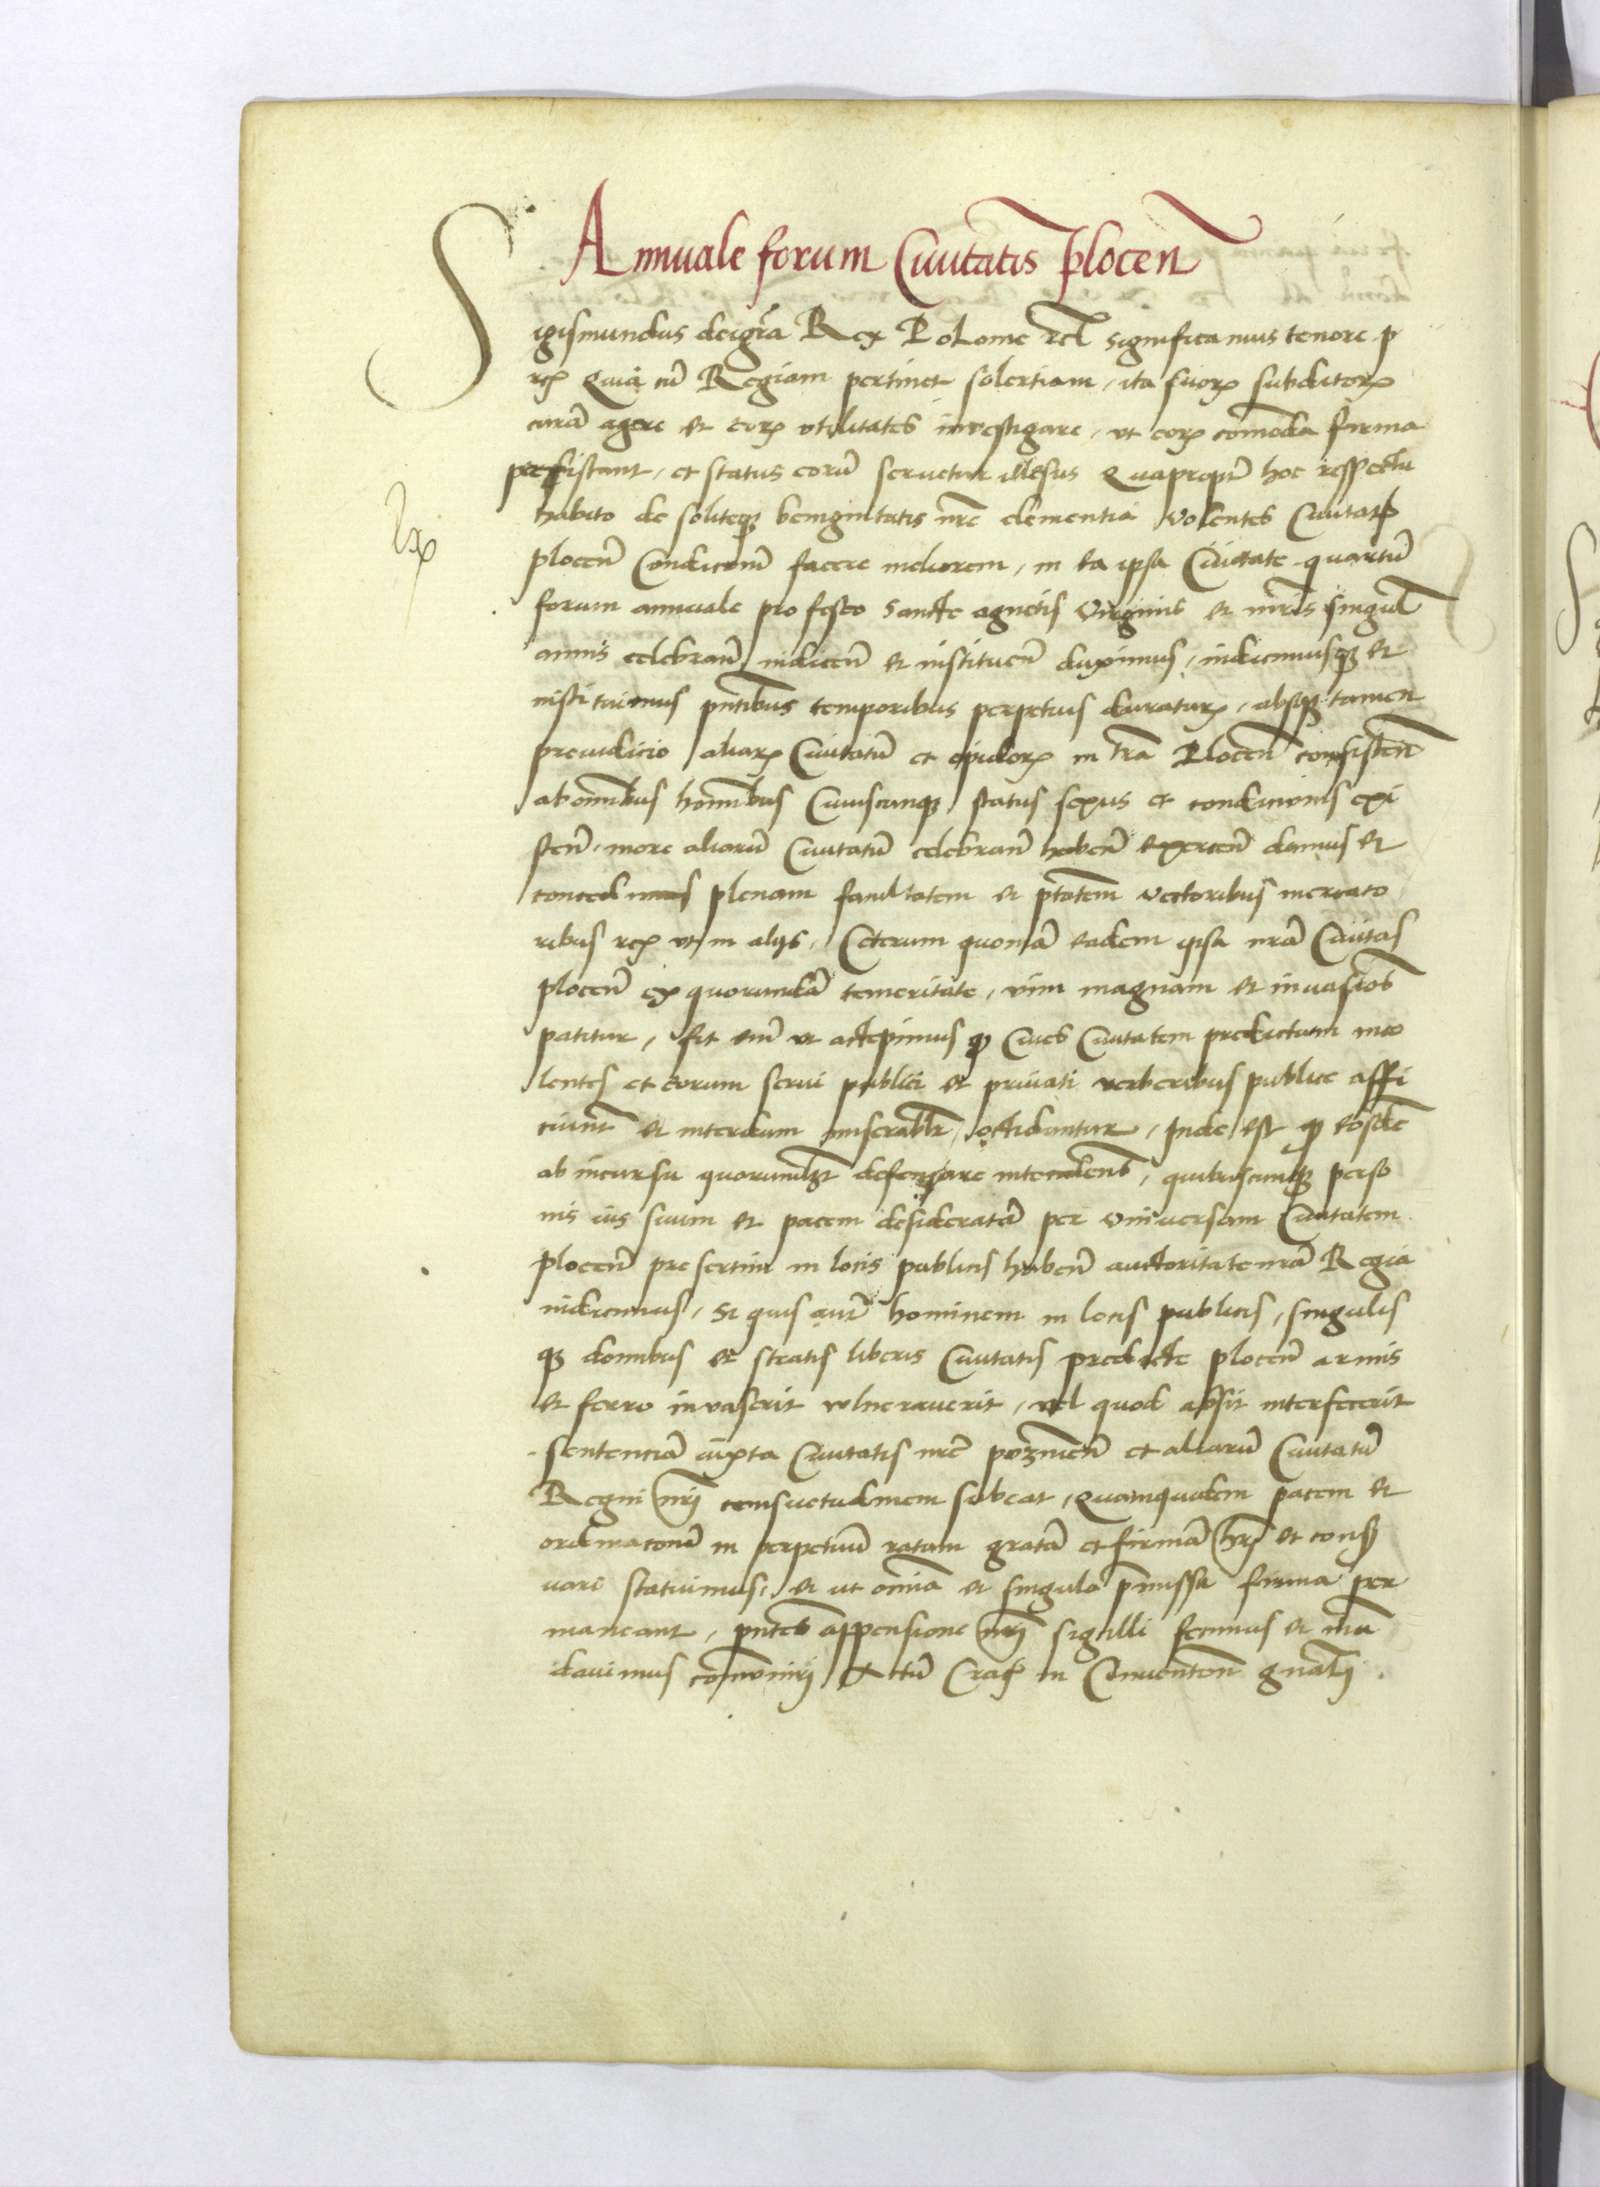 Annuale forum Civitatis plocen̄
Sigismundus dei gr̄a Rex Polonie etc̄ significamus tenore p̄
rꝫ Quia cū Regiam pertinet solertiam, ita suorꝫ subditorꝫ
curā agere et eorꝫ utilitates investigare, ut eorꝫ com̄oda firma
persistant, et status eorū servetur illesus Quapropt̄ hoc respectu
habito de soliteqꝫ benignitatis nr̄e clementia Volentes Civitat
plocen̄ Condicionē facere meliorem, in ea ipsa Civitate quartū
forum annuale pro festo Sancte agnetis Virginis et mr̄is singul
annis celebran̄ indicen̄ et instituen̄ duximus, indicimusqꝫ et
instituimus pn̄tibus temporibus perpetuis duraturꝫ, absqꝫ tamen
preiudicio aliarꝫ Civitatū et opidorꝫ in tr̄a Plocen̄ consisten̄
ab om̄ibus hom̄ibus Cuiuscunqꝫ status sexus et condicionis exi
sten̄, more aliarū Civitatū celebran̄ haben̄ exercen̄ damus et
concedimus plenam facultatem et ptātem vectoribus mercato
ribus rꝫ ut in alijs, Ceterum quoniā eadem ipsa nr̄a Civitas
plocen̄ ex quorundā temeritate, vim magnam et invasiones
patitur, fit enī ut accepimus qꝫ Cives Civitatem predictam inco
lentes et eorum servi publici et privati verberibus publice affi
ciunt̄ et interdum miserablr̄ occidantur, Inde est qꝫ eosdē
ab incursu quorumlꝫt defensare intenden̄s, quibuscunqꝫ perso
nis ius suum et pacem desideratā per Universam Civitatem
plocen̄ presertim in locis publicis haben̄ auctoritate nr̄a Regia
indicimus, Si quis autē hominem in locis publicis, singulis
qꝫ domibus et stratis liberis Civitatis predicte plocen̄ armis
et ferro invaserit vulneraverit, vel quod absit interfecerit
sententiā iuxta Civitatis nr̄e poznanien̄ et aliarū Civitatū
Regni nr̄i consuetudinem subeat, Quamquidem pacem et
ordinaconē in perpetuū ratam gratā et firmā hr̄i et conser
vari statuimus, et ut om̄ia et singula p̄missa firma per
maneant, pn̄tes appensione nr̄i sigilli fecimus et man
davimus com̄uniri Actū Crac̄ in Conventōe gnāli.